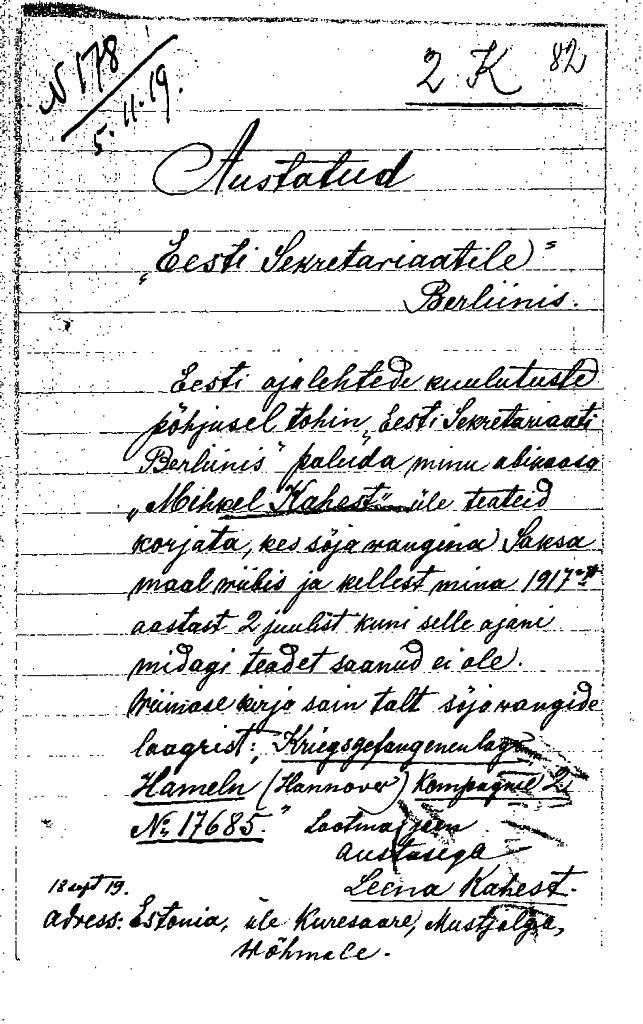 N 178
5.11.19.
2 K 82
Austatud
„Eesti Sekretariaatile"
Berliinis.
Eesti ajalehtede kuulutuste
põhjusel tohin „Eesti Sekretariaati
Berliinis" paluda minu abikaasa
„Mihkel Kahest" üle teateid
korjata, kes sõja wangina Saksa
maal wiibis ja kellest mina 1917
aastast 2 juulist kuni selle ajani
midagi teadet saanud ei ole.
Wiimase kirja sain talt sõja wangide
laagrist: „Kriegsgefangenenlager
Hameln (Hannover) Kompagnie 2
No 17685." Lootma jäen
austusega
Leena Kahest.
18 sept 19.
Adress: Estonia, üle Kuresaare, Mustjalga,
Wõhmale.